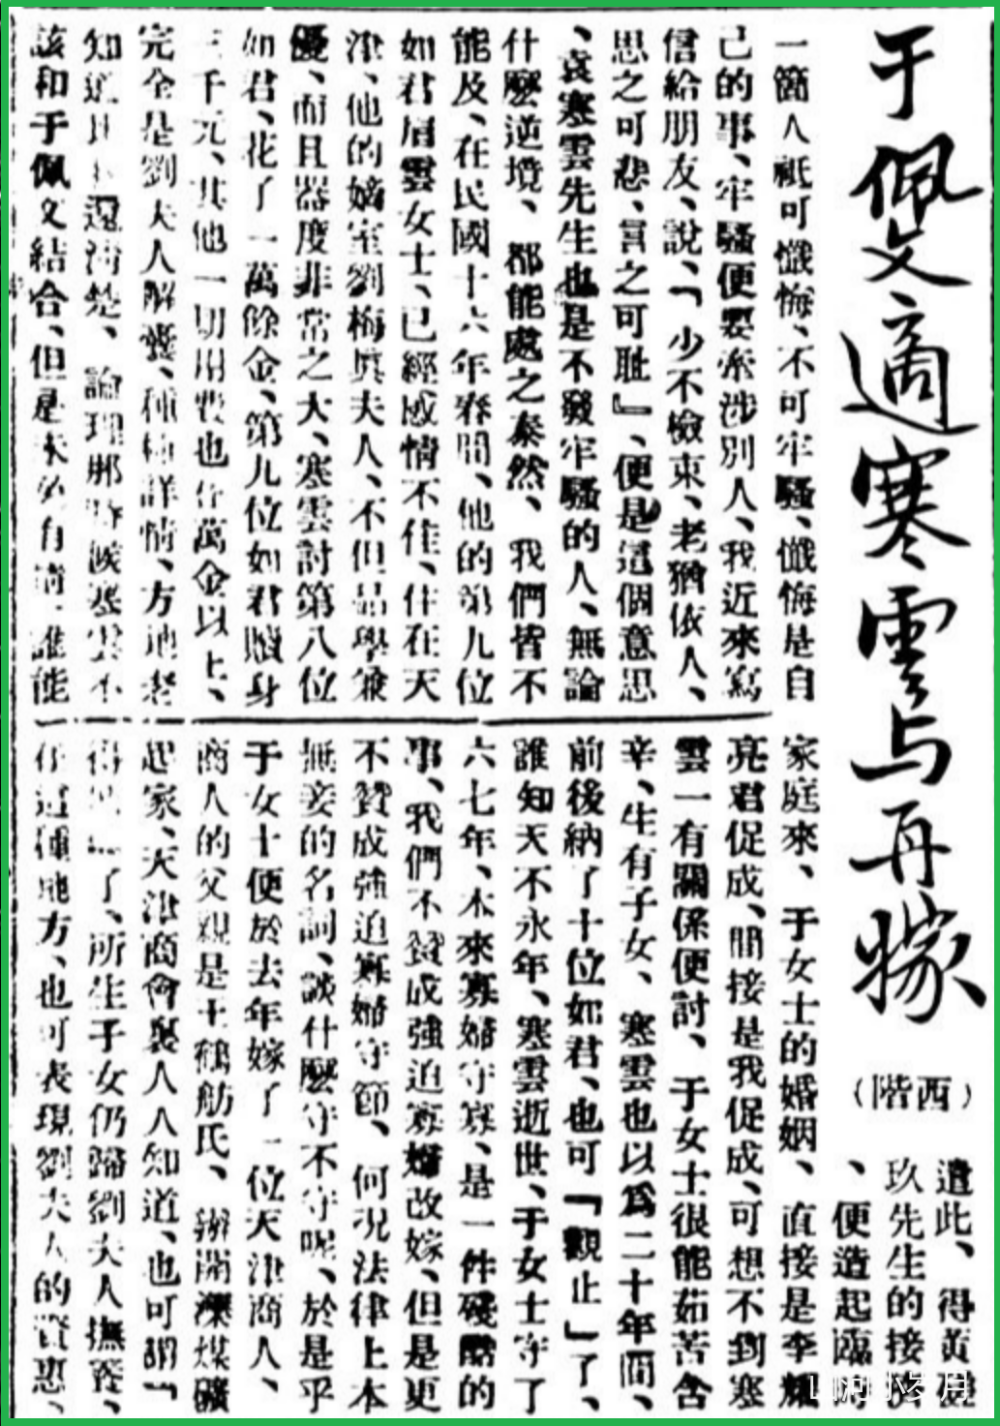 于佩文適寒雲与再嫁
（西階）
一箇人祇可懺悔、不可牢騷、懺悔是自
己的事、牢騷便要牽涉別人、我近來寫
信給朋友、說、「少不檢束、老猶依人、
思之可悲、言之可耻』、便是這個意思
、袁寒雲先生也是不發牢騷的人、無論
什麼逆境、都能處之泰然、我們皆不
能及、在民國十六年春間、他的第九位
如君眉雲女士、已經感情不佳、住在天
津、他的嫡室劉梅眞夫人、不但品學兼
優、而且器度非常之大、寒雲討第八位
如君、花了一萬餘金、第九位如君贖身
三千元、其他一切用費也在萬金以上、
完全是劉夫人解囊、種種詳情、方地老
知道比 還清楚、論理那時候寒雲不
該和于佩文結合、但是未 有 誰能
遺此、得黃
玖先生的接
、便造起臨
家庭來、于女士的婚姻、直接是李耀
亮君促成、間接是我促成、可想不到寒
雲一有關係便討、于女士很能茹苦含
辛、生有子女、寒雲也以爲二十年間、
前後納了十位如君、也可「觀止」了、
誰知天不永年、寒雲逝世、于女士守了
六七年、本來寡婦守寡、是一件殘酷的
事、我們不贊成強迫寡婦改嫁、但是更
不贊成強迫寡婦守節、何況法律上本
無妾的名詞、談什麼守不守呢、於是乎
于女士便於去年嫁了一位天津商人、
商人的父親是王鶴舫氏、辦開灤煤礦
起家、天津商會裏人人知道、也可謂「
得 」了、所生子女仍歸劉夫人撫養、
在這種地方、也可表現劉夫人的賢惠、